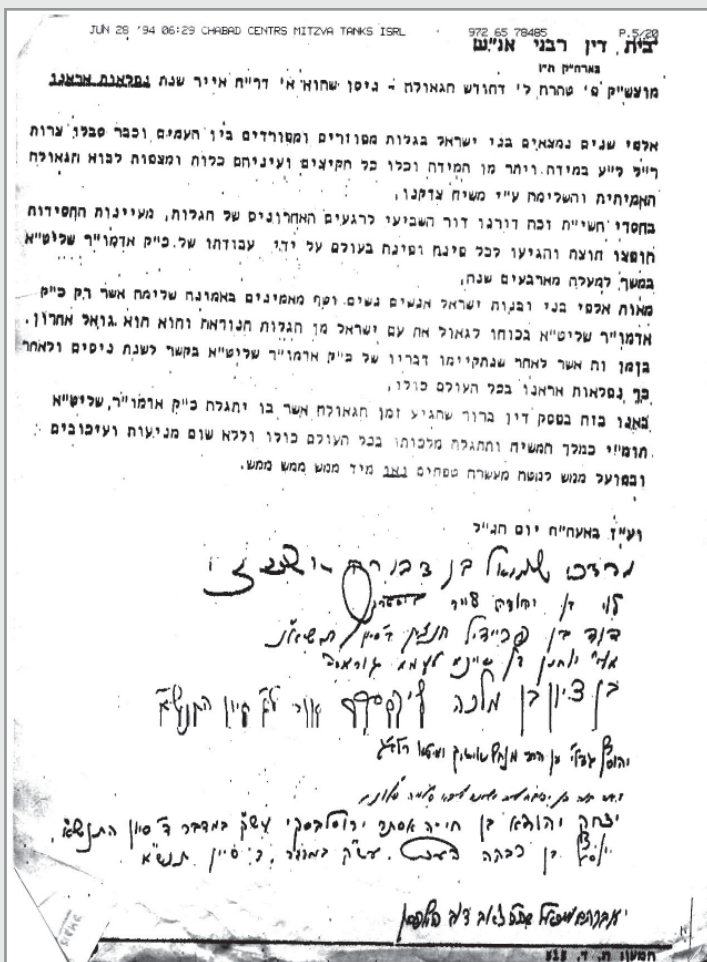 JUN 28 '94 06:29 CHABAD CENTRS MITZVA TANKS ISRL 972 65 78485 P.5/20
בית דין רבני אנ"ש
בארה"ק ת"ו
מוצש"ק פ' טהרה ל' דחודש הגאולה - ניסן שהוא א' דר"ח אייר שנת נפלאות אראנו
אלפי שנים נמצאים בני ישראל בגלות מפוזרים ומפורדים בין העמים וכבר סבלו צרות
ר"ל ל"ע במידה ויתר מן המידה וכלו כל הקיצים ועיניהם כלות ומצפות לבוא הגאולה
האמיתית והשלימה ע"י משיח צדקנו,
בחסדי השי"ת זכה דורנו דור השביעי לרגעים האחרונים של הגלות, מעיינות החסידות
הופצו חוצה והגיעו לכל פינה ופינה בעולם על ידי עבודתו של כ"ק אדמו"ר שליט"א
במשך למעלה מארבעים שנה,
מאות אלפי בני ובנות ישראל אנשים נשים וטף מאמינים באמונה שלימה אשר רק כ"ק
אדמו"ר שליט"א בכוחו לגאול את עם ישראל מן הגלות הנוראה והוא הוא גואל אחרון.
בזמן זה אשר לאחר שנתקיימו דבריו של כ"ק אדמו"ר שליט"א בקשר לשנת ניסים ולאחר
כך נפלאות אראנו בכל העולם כולו,
באנו בזה בפסק דין ברור שהגיע זמן הגאולה אשר בו יתגלה כ"ק אדמו"ר שליט"א
תומ"י כמלך המשיח ותתגלה מלכותו בכל העולם כולו וללא שום מניעות ועיכובים
ובפועל ממש למטה מעשרה טפחים נאו מיד ממש ממש ממש.
ועז"ז באעה"ח יום הנ"ל
מרדכי שמואל בן דבורה
לוי בן יהודה
דוד בן פריידל
בן ציון בן מלכה
יצחק יהודא בן חייה אסתר ירוסלבסקי עש"ק במדבר ד' סיון התנש"א
בן רבקה עש"ק במדבר ד' סיון תנש"א